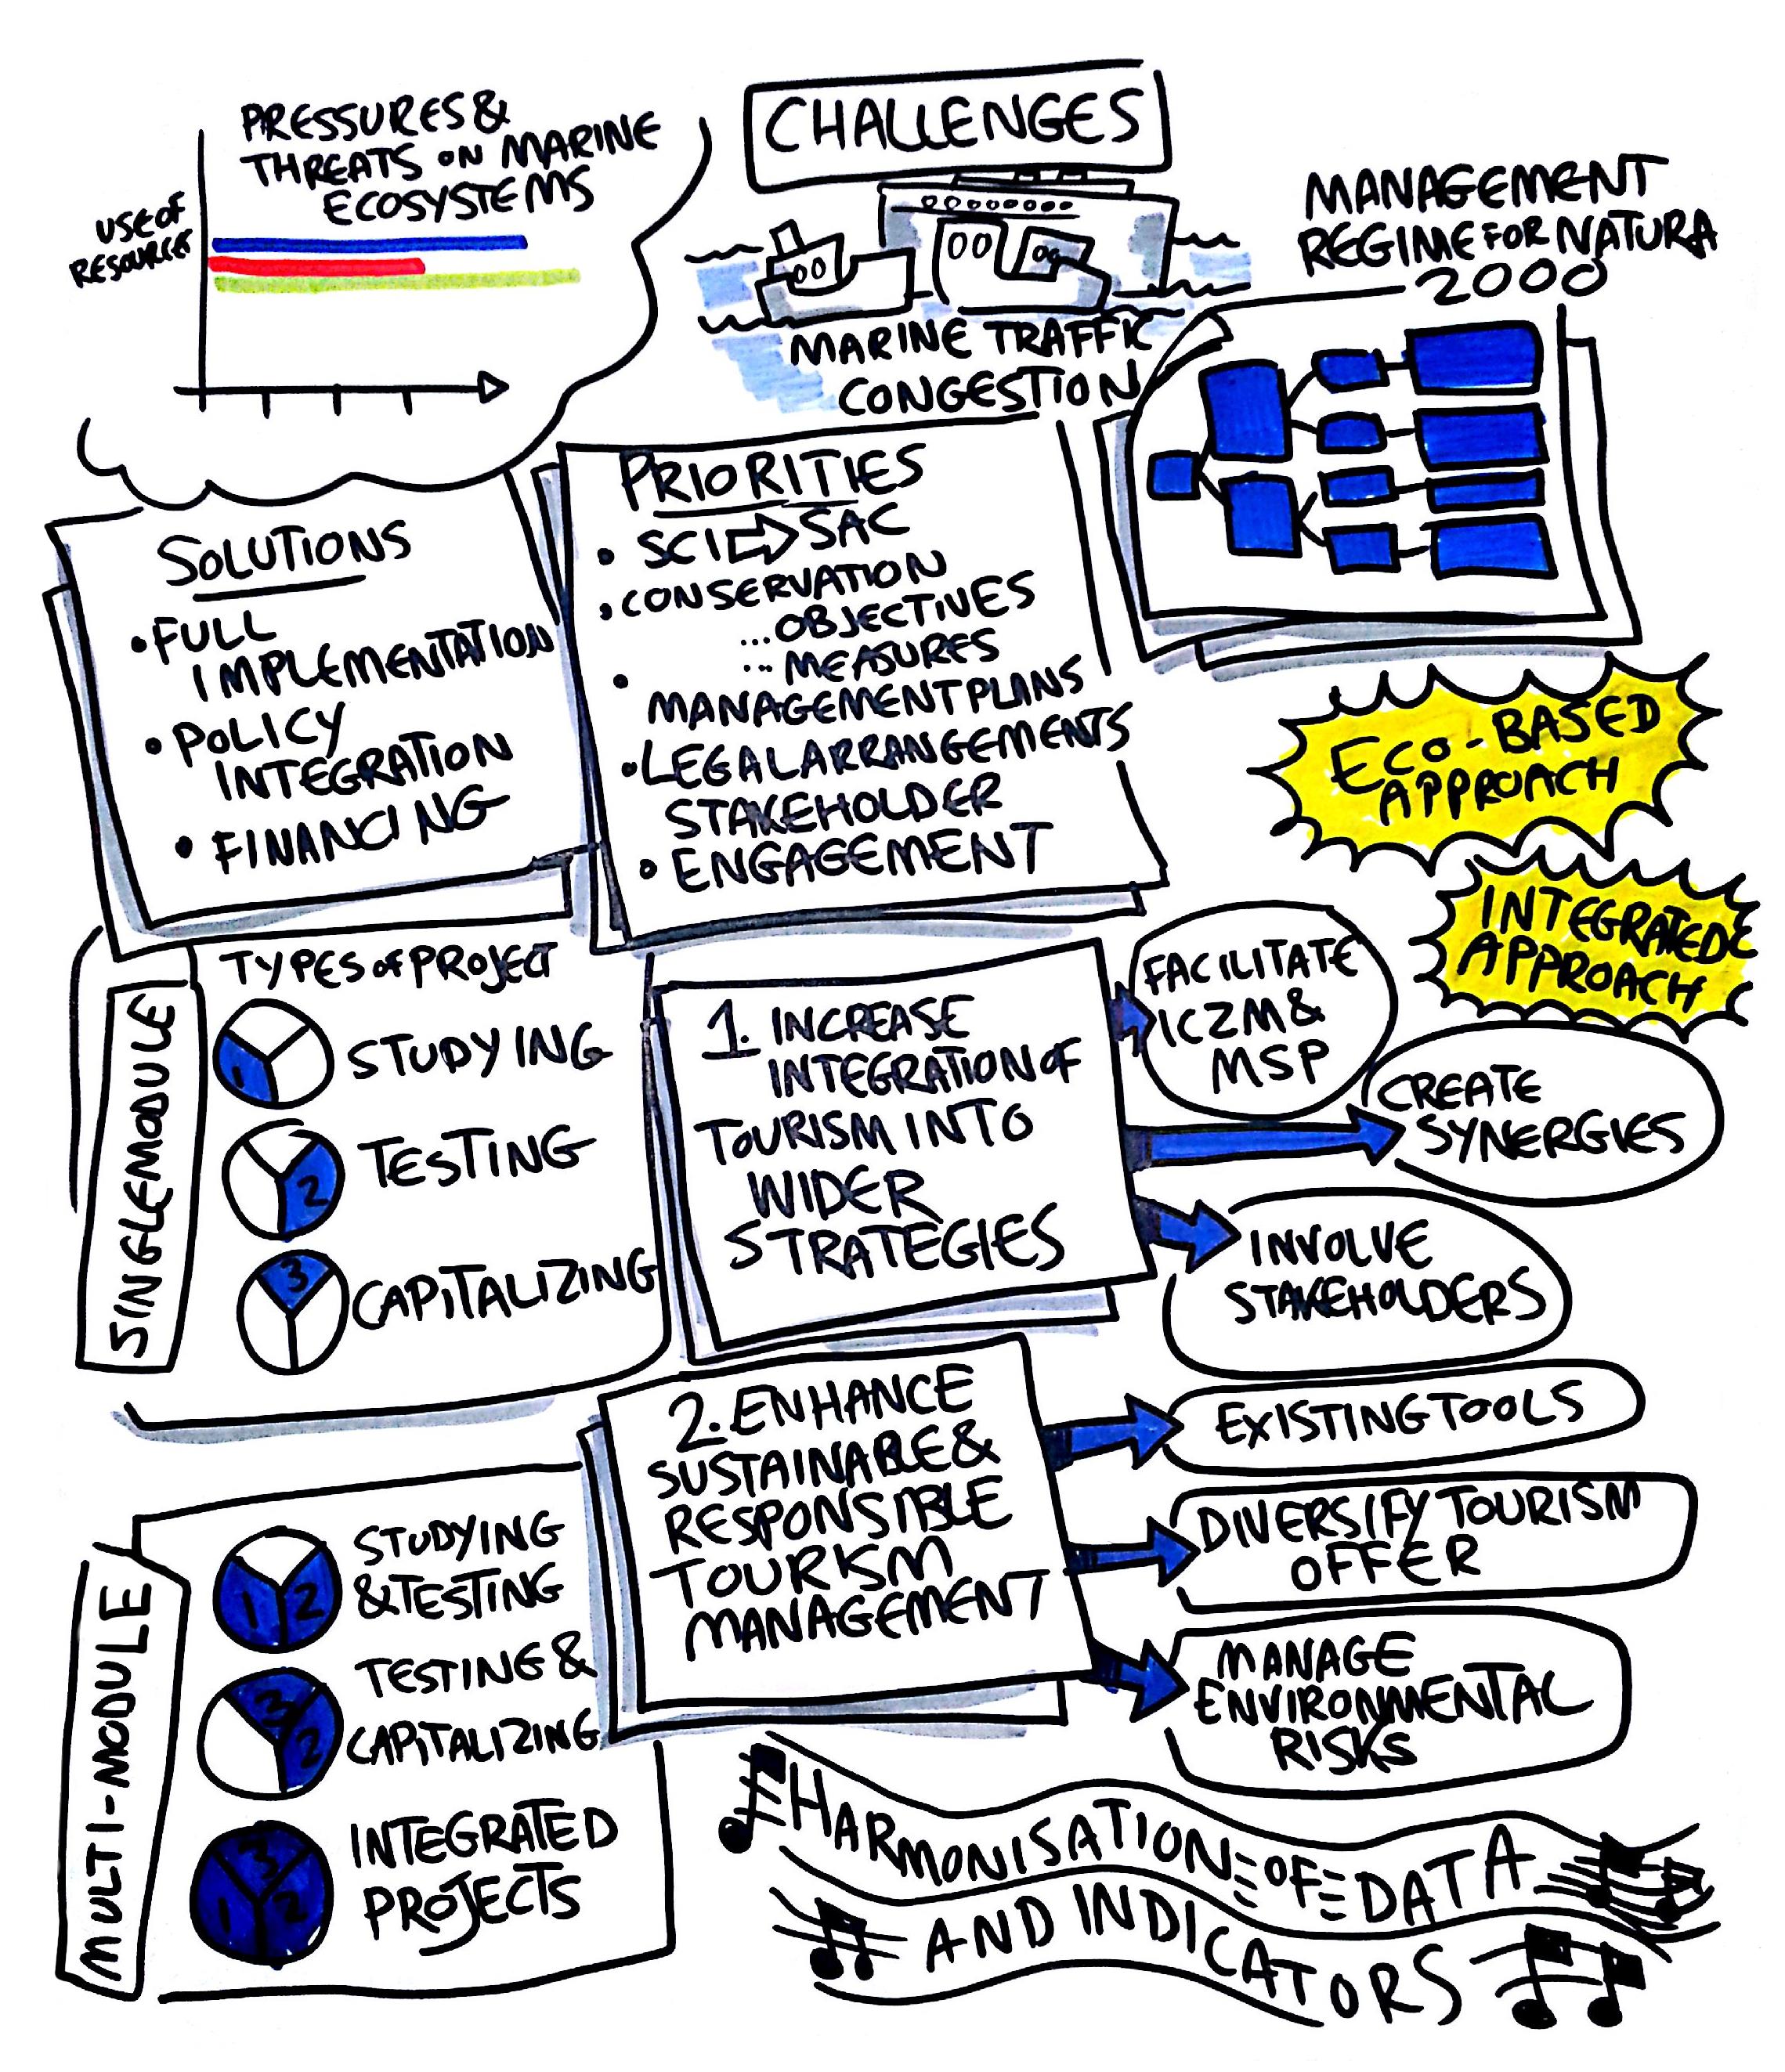 PRESSURES &
THREATS ON MARINE
ECOSYSTEMS
USE OF
RESOURCES
CHALLENGES
MARINE TRAFFIC
CONGESTION
MANAGEMENT
REGIME FOR NATURA
2000
SOLUTIONS
• FULL
IMPLEMENTATION
• POLICY
INTEGRATION
• FINANCING
PRIORITIES
• SCI ⇨ SAC
• CONSERVATION
... OBJECTIVES
... MEASURES
• MANAGEMENT PLANS
• LEGAL ARRANGEMENTS
STAKEHOLDER
• ENGAGEMENT
ECO-BASED
APPROACH
INTEGRATED
APPROACH
SINGLE MODULE
TYPES OF PROJECT
1 STUDYING
2 TESTING
3 CAPITALIZING
1. INCREASE
INTEGRATION OF
TOURISM INTO
WIDER
STRATEGIES
FACILITATE
ICZM &
MSP
CREATE
SYNERGIES
INVOLVE
STAKEHOLDERS
2. ENHANCE
SUSTAINABLE &
RESPONSIBLE
TOURISM
MANAGEMENT
EXISTING TOOLS
DIVERSIFY TOURISM
OFFER
MANAGE
ENVIRONMENTAL
RISKS
MULTI-MODULE
1 2
STUDYING
& TESTING
3 2
TESTING &
CAPITALIZING
3 1 2
INTEGRATED
PROJECTS
HARMONISATION OF DATA
AND INDICATORS